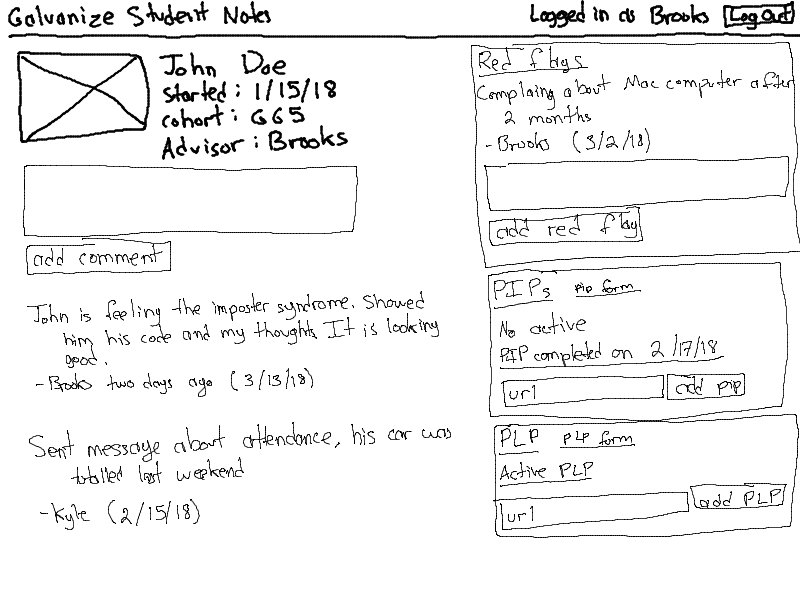 Galvanize Student Notes
Logged in as Brooks Log Out
John Doe
Started: 1/15/18
cohort: G65
Advisor: Brooks
add comment
John is feeling the imposter syndrome. Showed
him his code and my thoughts. It is looking
good.
- Brooks two days ago (3/13/18)
Sent message about attendance, his car was
totalled last weekend
- Kyle (2/15/18)
Red flags
Complaing about Mac computer after
2 months
- Brooks (3/2/18)
add red flag
PIPs pip form
No active
PIP completed on 2/17/18
url add pip
PLP PLP form
Active PLP
url add PLP